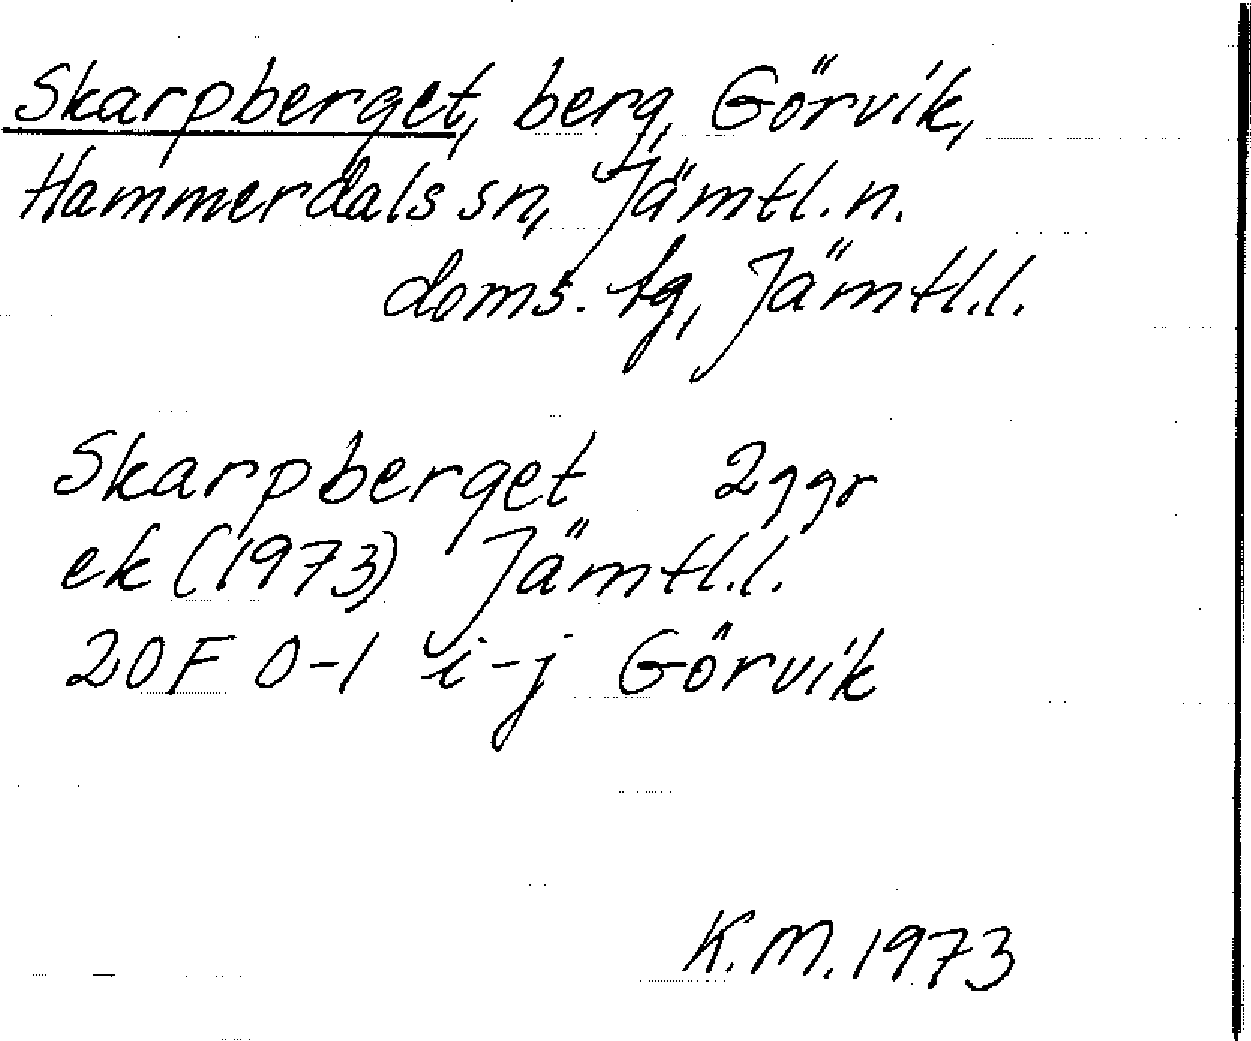 Skarpberget, berg, Görvik,
Hammerdals sn, Jämtl. n.
doms. tg, Jämtl.l.
Skarpberget 2 ggr
ek (1973) Jämtl.l.
20F 0-1 i-j Görvik
K.M. 1973